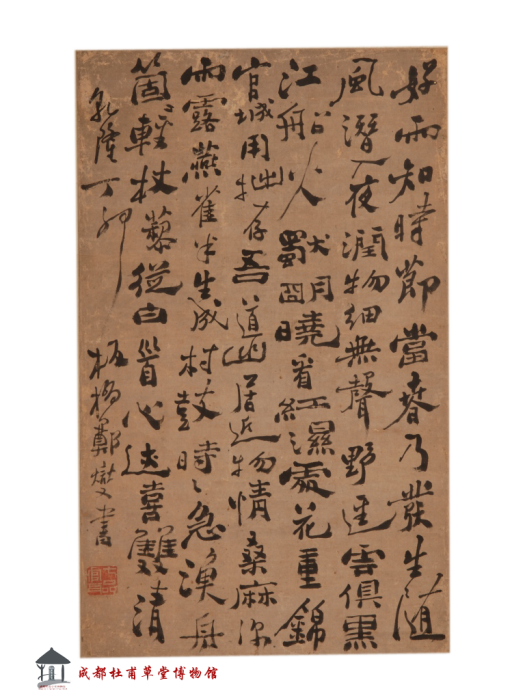 好雨知時節當春乃發生隨
風潛入夜潤物細無聲野逕雲俱黑
江船火獨明曉看紅濕處花重錦
官城用拙存吾道幽居近物情桑麻深
雨露燕雀半生成村鼓時々急漁舟
箇々輕杖藜從白首心迹喜雙清
乾隆丁卯
板橋鄭燮書
成都杜甫草堂博物館